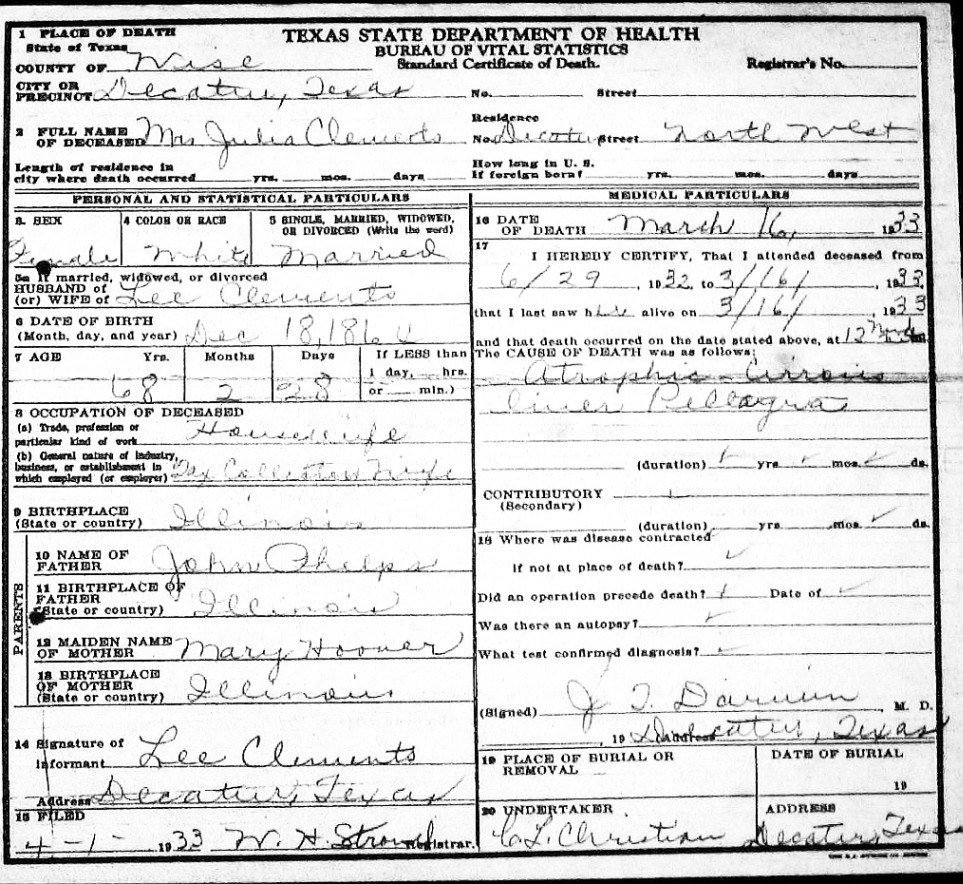 1 PLACE OF DEATH
State of Texas
COUNTY OF Wise
CITY OR
PRECINCT Decatur, Texas
TEXAS STATE DEPARTMENT OF HEALTH
BUREAU OF VITAL STATISTICS
Standard Certificate of Death.
Registrar's No.
No. Street
2 FULL NAME
OF DECEASED Mrs Julia Clements
Residence
No. Decatur Street North West
Length of residence in
city where death occurred yrs. mos. days
How long in U. S.
If foreign born? yrs. mos. days
PERSONAL AND STATISTICAL PARTICULARS
3. SEX
Female
4 COLOR OR RACE
White
5 SINGLE, MARRIED, WIDOWED,
OR DIVORCED (Write the word)
Married
5a If married, widowed, or divorced
HUSBAND of
(or) WIFE of Lee Clements
6 DATE OF BIRTH
(Month, day, and year) Dec 18, 186
7 AGE Yrs. Months Days
68 2 28
If LESS than
1 day, hrs.
or min.)
8 OCCUPATION OF DECEASED
(a) Trade, profession or
particular kind of work Housewife
(b) General nature of industry,
business, or establishment in
which employed (or employer) Tax Collectors Wife
9 BIRTHPLACE
(State or country) Illinois
PARENTS
10 NAME OF
FATHER John Phelps
11 BIRTHPLACE OF
FATHER
(State or country) Illinois
12 MAIDEN NAME
OF MOTHER Mary Hoover
13 BIRTHPLACE
OF MOTHER
(State or country) Illinois
14 Signature of
Informant Lee Clements
Address Decatur, Texas
15 FILED
4-1- 1933 W. H. Stroud Registrar.
MEDICAL PARTICULARS
16 DATE
OF DEATH March 16, 1933
17
I HEREBY CERTIFY, That I attended deceased from
6/29, 1932, to 3/16/, 1933,
that I last saw her alive on 3/16/, 1933
and that death occurred on the date stated above, at 12 Noon m.
The CAUSE OF DEATH was as follows:
Atrophic Cirrosis
liver Pellagra
(duration) yrs. mos. ds.
CONTRIBUTORY
(Secondary)
(duration) yrs. mos. ds.
18 Where was disease contracted
If not at place of death?
Did an operation precede death? Date of
Was there an autopsy?
What test confirmed diagnosis?
(Signed) J. T. , M. D.
, 19 Decatur, Texas
19 PLACE OF BURIAL OR
REMOVAL
DATE OF BURIAL
19
20 UNDERTAKER
C. L. Christian
ADDRESS
Decatur, Texas